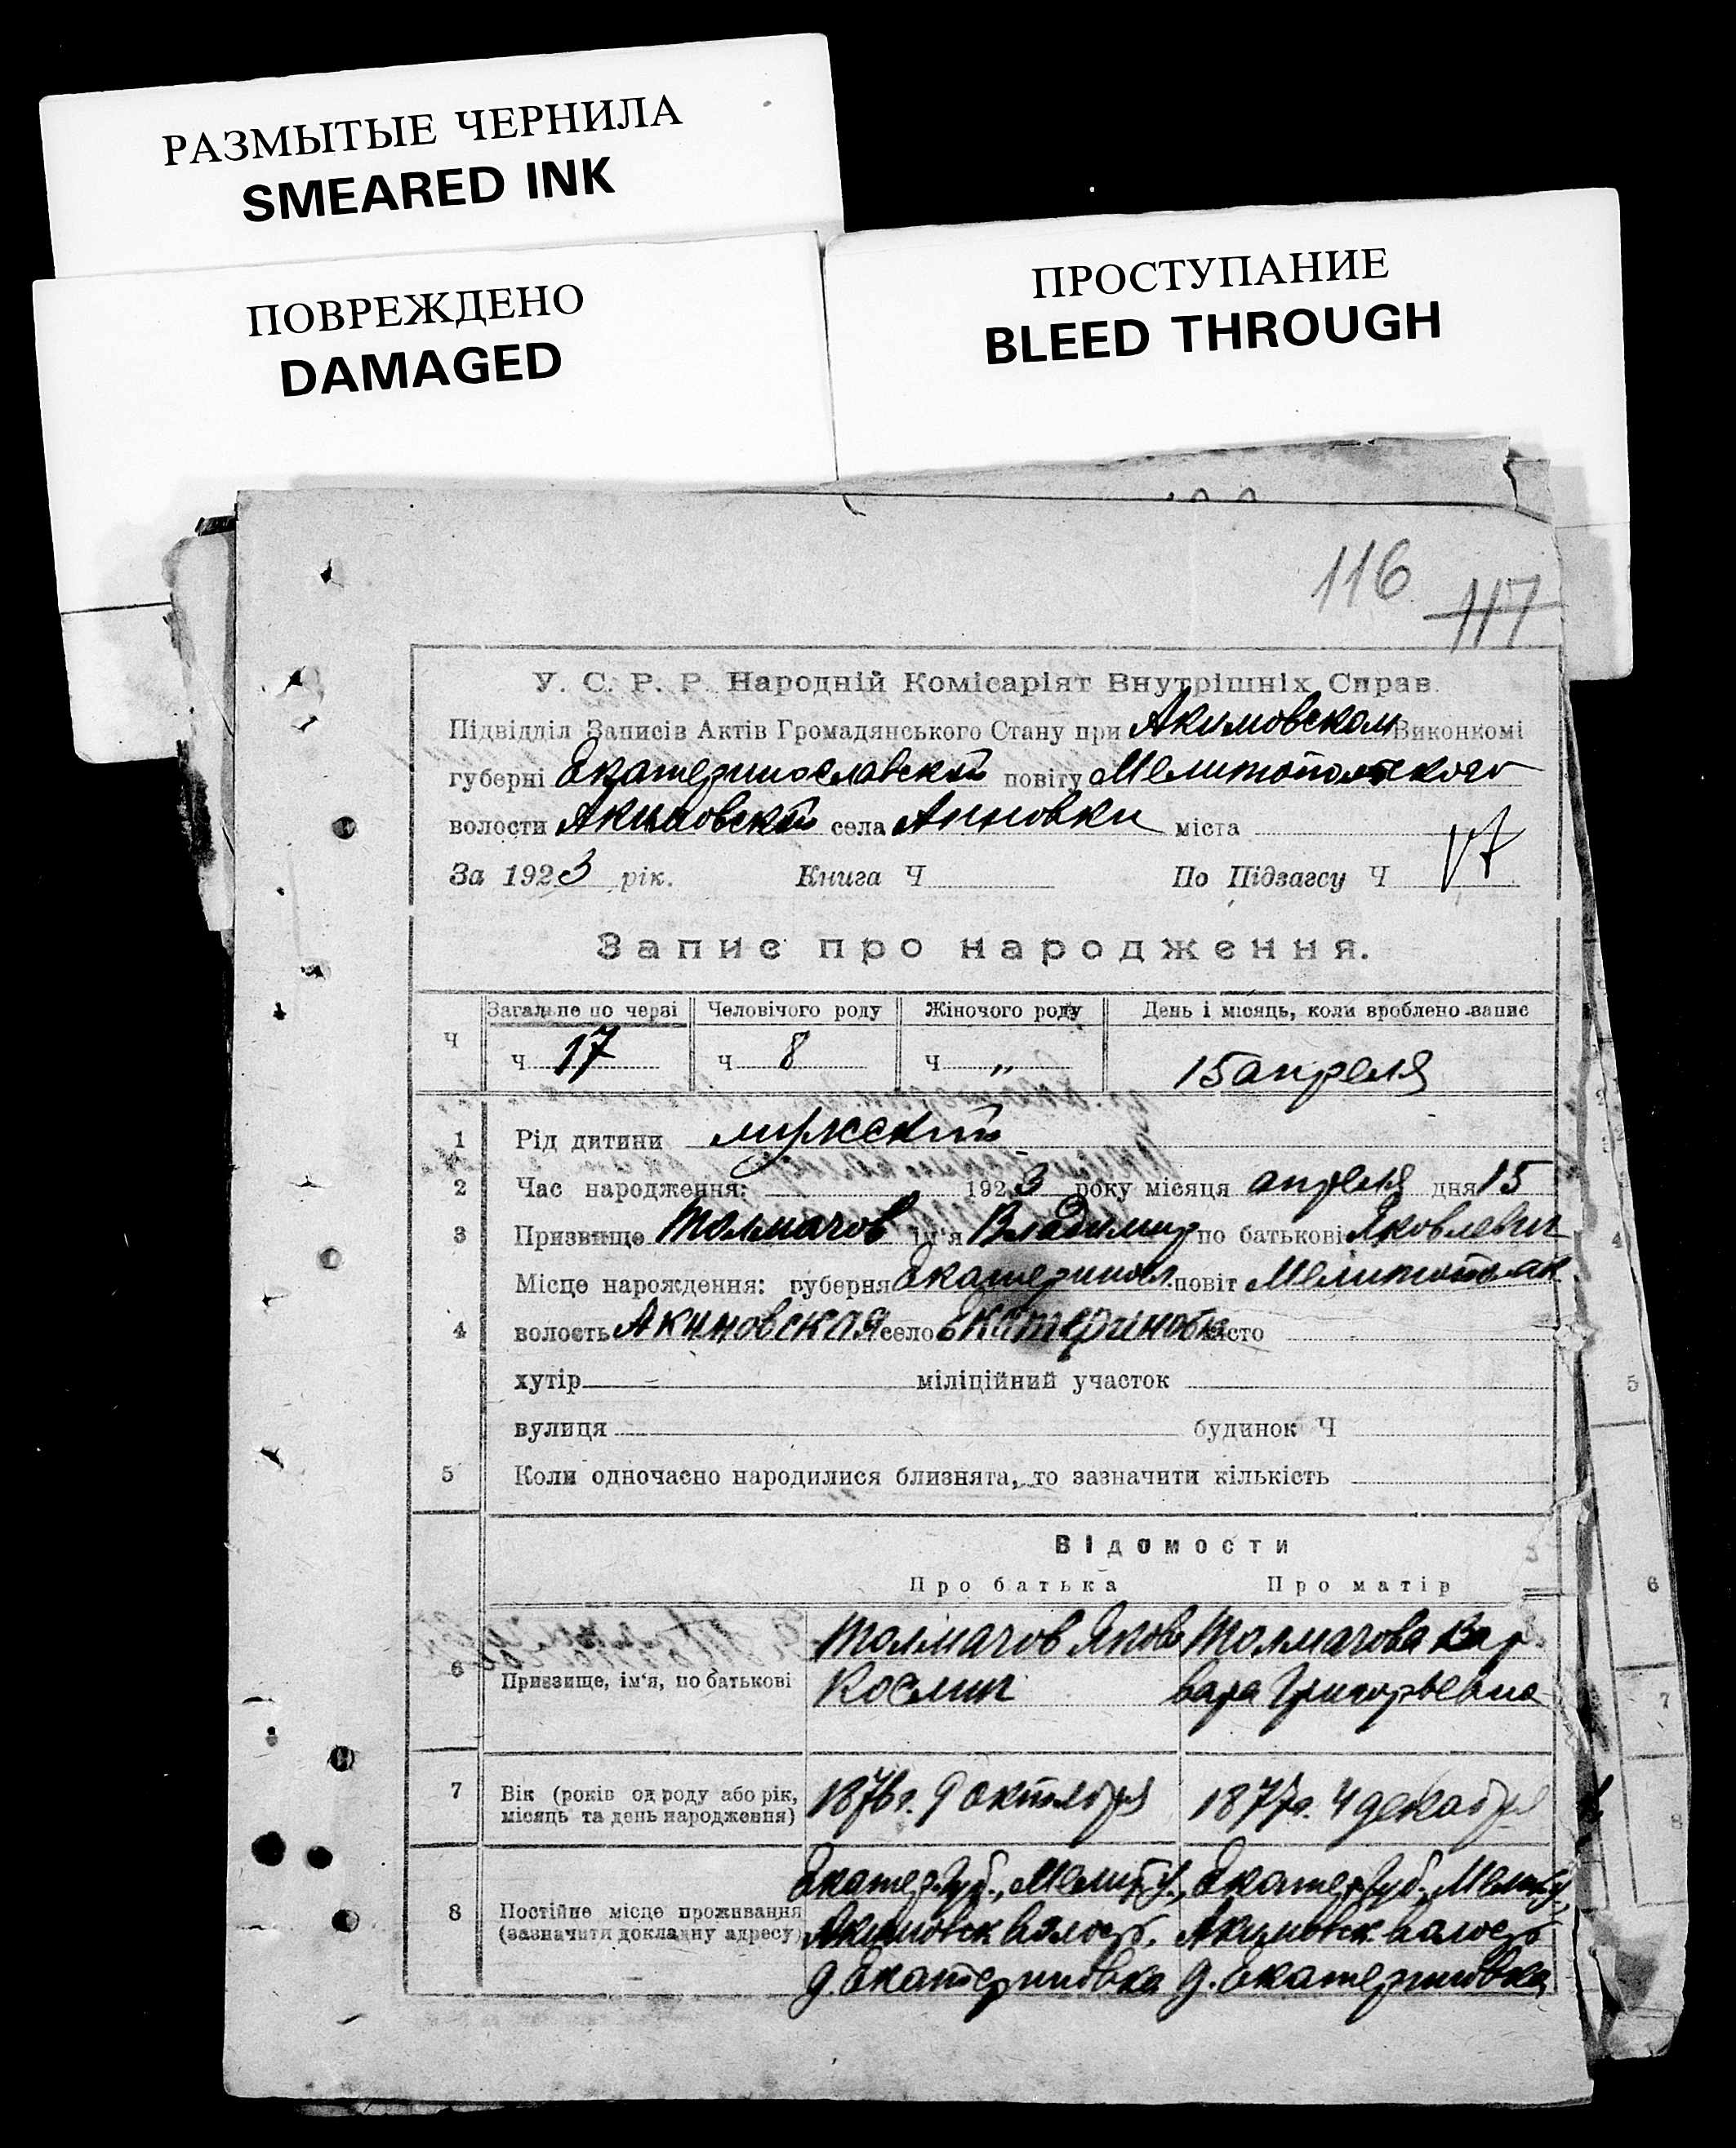 РАЗМЫТЫЕ ЧЕРНИЛА
SMEARED INK
ПОВРЕЖДЕНО
DAMAGED
ПРОСТУПАНИЕ
BLEED THROUGH
116 117
У. С. Р. Р. Народній Комісаріят Внутрішніх Справ.
Підвідділ Записів Актів Громадянського Стану при Акимовском Виконкомі
губерні Екатеринославской повіту Мелитопольского
волости Акимовской села Анновки міста
За 1923 рік. Книга Ч По Підзагсу Ч 17
Запис про народження.
Ч Загальне по черзі Человічого роду Жіночого роду День і місяць, коли вроблено запис
ч 17 ч 8 ч „ 15 апреля
1 Рід дитини мужской
2 Час народження: 1923 року місяця апреля дня 15
3 Призвище Толмачов ім'я Владимир по батькові Яковлевич
Місце нарождення: губерня Екатериносл. повіт Мелитопольск
4 волость Акимовская село Екатериновка місто
хутір міліційний участок
вулиця будинок Ч
5 Коли одночасно народилися близнята, то зазначити кількість
Відомости
Про батька Про матір
6 Призвище, ім'я, по батькові
Толмачов Яков Толмачова Вар
Космич вара Григорьевна
7 Вік (років од роду або рік, місяць та день народження)
1876 г. 9 октября 1877 г. 4 декабря
8 Постійне місце проживання (зазначити докладну адресу)
Екатер. Губ., Мелит. у., Екатер. Губ. Мелит. у,
Акимовск волость. Акимовск. волость
д. Екатериновка д. Екатериновка
4
5
6
7
8